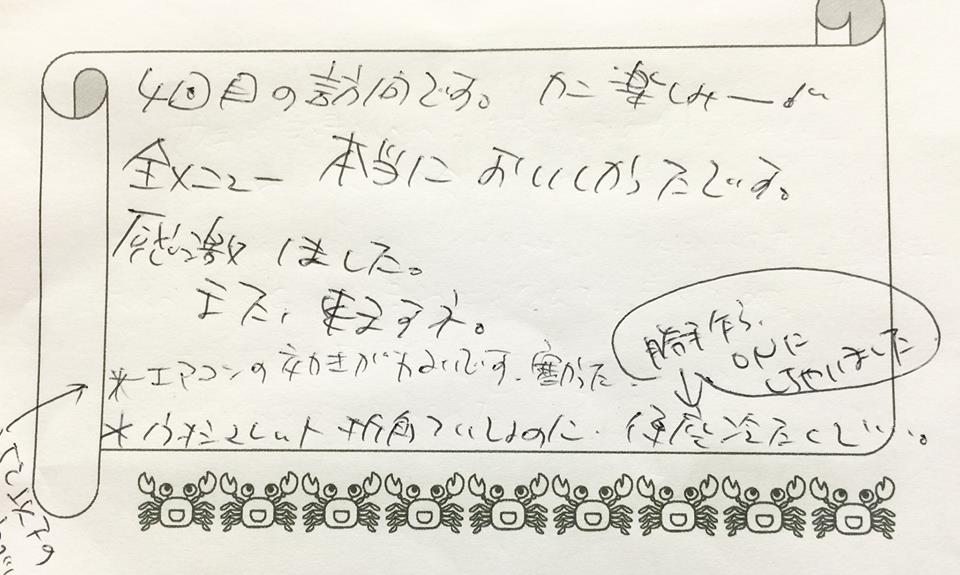 4回目の訪問です。カニ楽しみーーが
全メニュー 本当に おいしかったです。
感激しました。
また、来ますネ。
*エアコンの効きがわるいです、寒かった
勝手乍ら、
ONに
しちゃいました
*ウォシュレット 折角 のに、便座冷たくて